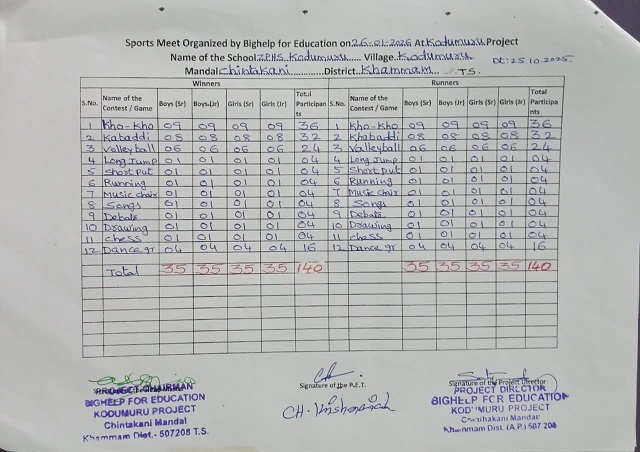 Sports Meet Organized by Bighelp for Education on 26-01-2026 At Kodumuru Project
Name of the School Z.P.H.S. Kodumuru..... Village. Kodumuru
Dt: 25.10.2025.
Mandal Chintakani............District. Khammam... T.S.
Winners Runners
S.No. Name of the Contest / Game Boys (Sr) Boys (Jr) Girls (Sr) Girls (Jr) Total Participants S.No. Name of the Contest / Game Boys (Sr) Boys (Jr) Girls (Sr) Girls (Jr) Total Participants
1 Kho-Kho 09 09 09 09 36 1 Kho-Kho 09 09 09 09 36
2 Kabaddi 08 08 08 08 32 2 Kabaddi 08 08 08 08 32
3 Volleyball 06 06 06 06 24 3 Volleyball 06 06 06 06 24
4 Long Jump 01 01 01 01 04 4 Long Jump 01 01 01 01 04
5 Short put 01 01 01 01 04 5 Short put 01 01 01 01 04
6 Running 01 01 01 01 04 6 Running 01 01 01 01 04
7 Music chair 01 01 01 01 04 7 Music chair 01 01 01 01 04
8 Songs 01 01 01 01 04 8 Songs 01 01 01 01 04
9 Debate 01 01 01 01 04 9 Debate 01 01 01 01 04
10 Drawing 01 01 01 01 04 10 Drawing 01 01 01 01 04
11 chess 01 01 01 01 04 11 chess 01 01 01 01 04
12 Dance gr 04 04 04 04 16 12 Dance gr 04 04 04 04 16
Total 35 35 35 35 140 35 35 35 35 140
PROJECT CHAIRMAN
BIGHELP FOR EDUCATION
KODUMURU PROJECT
Chintakani Mandal
Khammam Dist.- 507208 T.S.
Signature of the P.E.T.
Signature of the Project Director
PROJECT DIRECTOR
BIGHELP FOR EDUCATION
KODUMURU PROJECT
Chintakani Mandal
Khammam Dist (A.P.) 507 208